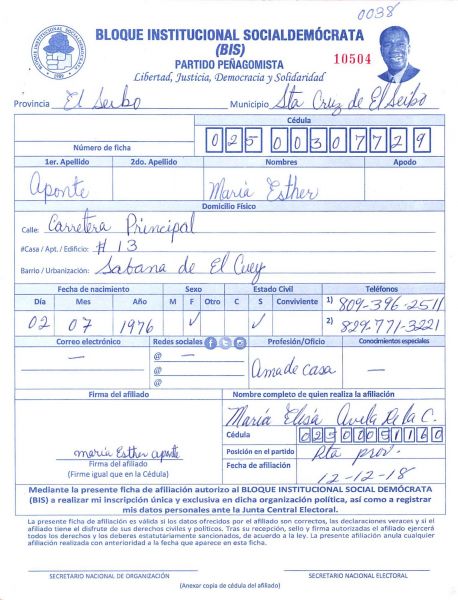 0038
BLOQUE INSTITUCIONAL SOCIALDEMÓCRATA
(BIS)
PARTIDO PEÑAGOMISTA
10504
Libertad, Justicia, Democracia y Solidaridad
Provincia El Seibo Municipio Sta Cruz de El Seibo
Cédula
Número de ficha 025 0030772 9
1er. Apellido 2do. Apellido Nombres Apodo
Aponte María Esther
Domicilio Físico
Calle: Carretera Principal
#Casa / Apt. / Edificio: # 13
Barrio / Urbanización: Sabana de El Cuey
Fecha de nacimiento Sexo Estado Civil Teléfonos
Día Mes Año M F Otro C S Conviviente 1) 809-396-2511
02 07 1976 ✓ ✓ 2) 829-771-3221
Correo electrónico Redes sociales Profesión/Oficio Conocimientos especiales
— @ — Ama de casa —
@
@
Firma del afiliado Nombre completo de quien realiza la afiliación
María Elisa Avila De la C.
Cédula
maría Esther aponte Posición en el partido Pta prov.
Firma del afiliado
(Firme igual que en la Cédula) Fecha de afiliación 12-12-18
Mediante la presente ficha de afiliación autorizo al BLOQUE INSTITUCIONAL SOCIAL DEMÓCRATA
(BIS) a realizar mi inscripción única y exclusiva en dicha organización política, así como a registrar
mis datos personales ante la Junta Central Electoral.
La presente ficha de afiliación es válida si los datos ofrecidos por el afiliado son correctos, las declaraciones veraces y si el
afiliado tiene el disfrute de sus derechos civiles y políticos. Tras su recepción, sello y firma autorizadas el afiliado ejercerá
todos los derechos y los deberes estatutariamente sancionados, de acuerdo a la ley. La presente afiliación anula cualquier
afiliación realizada con anterioridad a la fecha que aparece en esta ficha.
SECRETARIO NACIONAL DE ORGANIZACIÓN SECRETARIO NACIONAL ELECTORAL
(Anexar copia de cédula del afiliado)